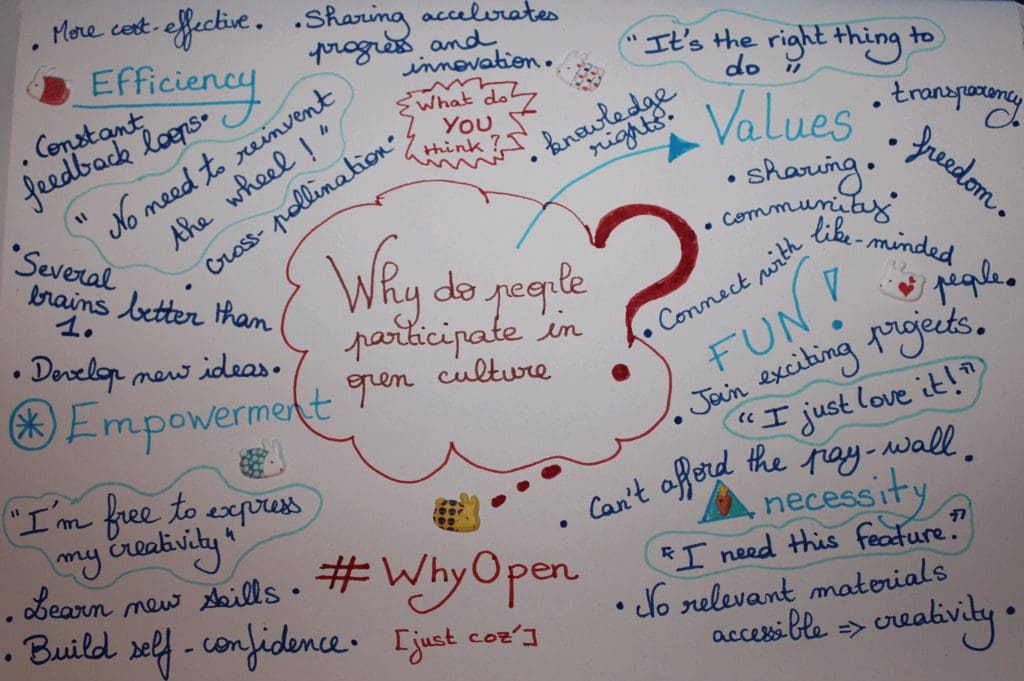 . More cost-effective.
Efficiency
. Constant
feedback loops.
"No need to reinvent
the wheel!"
. cross-pollination.
. Several
brains better than
1.
. Sharing accelerates
progress and
innovation.
What do
YOU
think?
"It's the right thing to
do"
Values
. transparency.
. knowledge
rights.
. freedom.
. sharing.
. community.
Why do people
participate in
open culture
?
. Connect with like-minded
people.
FUN!
. Join exciting projects.
"I just love it!"
. Develop new ideas.
* Empowerment
"I'm free to express
my creativity"
. Learn new skills.
. Build self-confidence.
. Can't afford the pay-wall.
necessity
"I need this feature."
. No relevant materials
accessible => creativity.
#WhyOpen
[just coz']